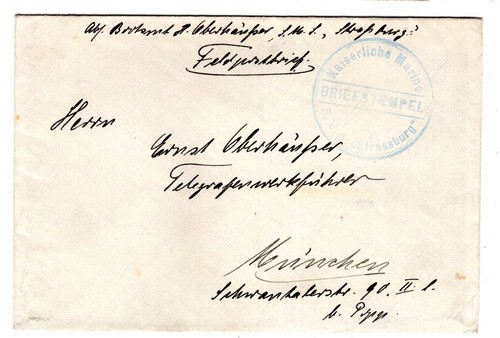 Oberhäußer, S.M.S. „Straßburg"
Feldpostbrief.
Kaiserliche Marine
BRIEFSTEMPEL
S.M.S. „Strassburg"
Herrn
Ernst Oberhäußer,
Telegrafenwerkführer
München
Schwanthalerstr. 90. II. l.
b. Popp.